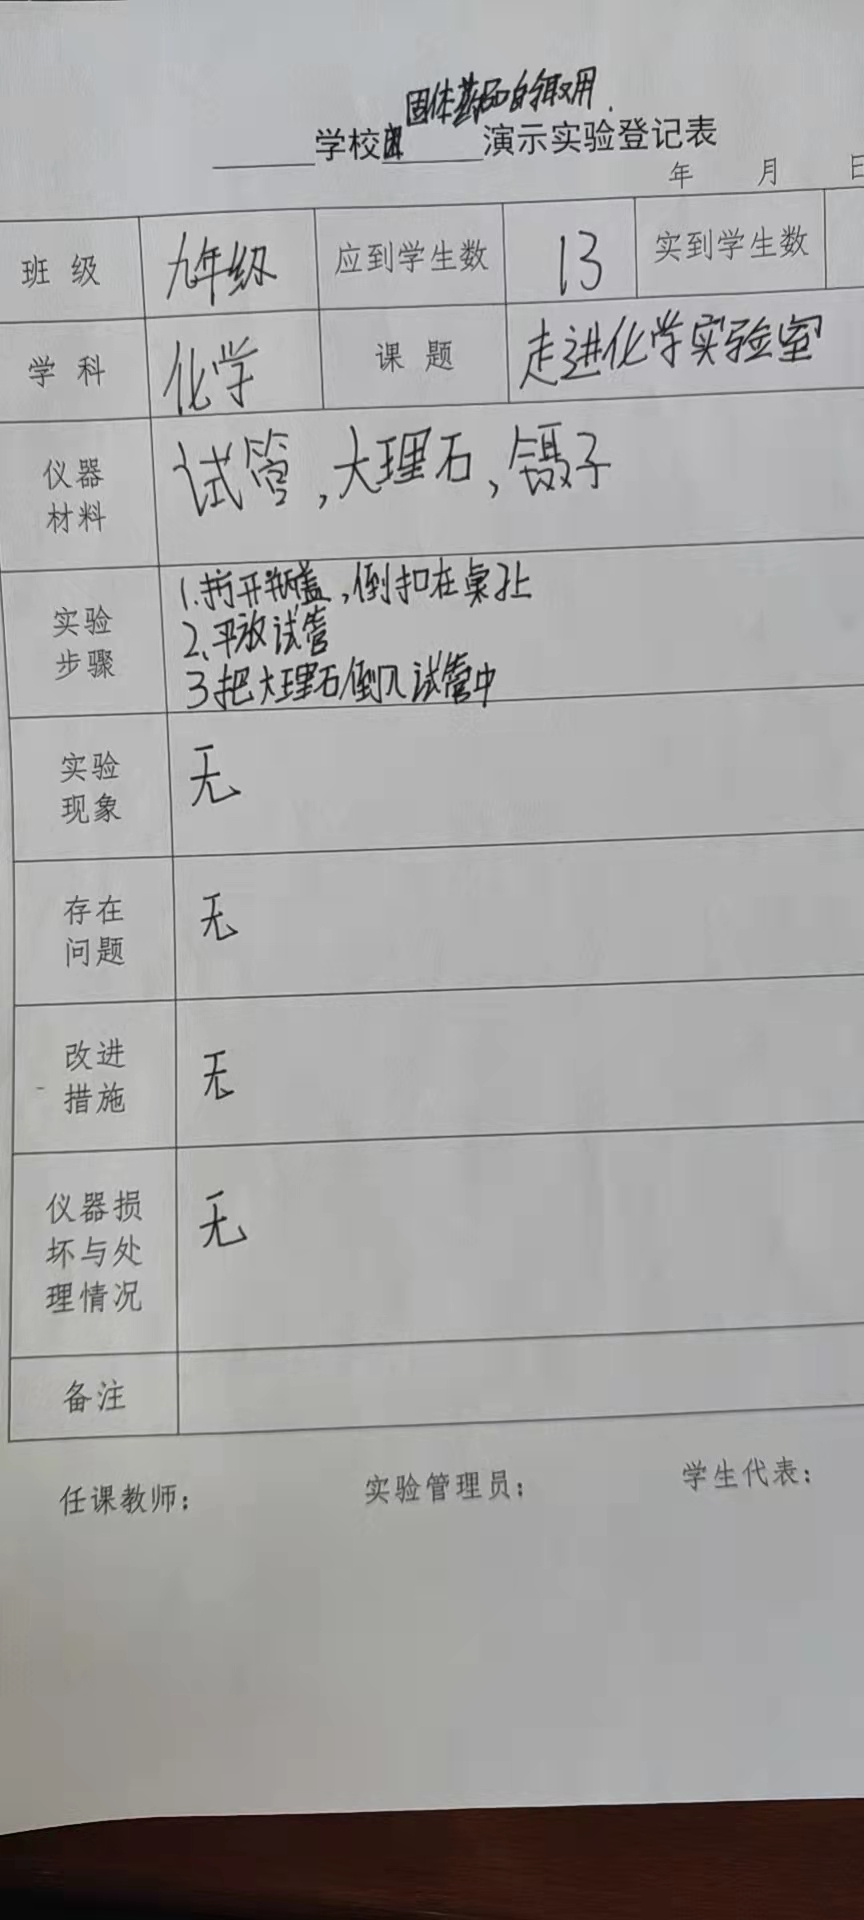 固体药品的取用.
学校 演示实验登记表
年 月 日
班级 九年级 应到学生数 13 实到学生数
学科 化学 课题 走进化学实验室
仪器
材料
试管,大理石,镊子
实验
步骤
1.打开瓶盖,倒扣在桌子上
2、平放试管
3把大理石倒入试管中
实验
现象
无
存在
问题
无
改进
措施
无
仪器损
坏与处
理情况
无
备注
任课教师: 实验管理员: 学生代表: